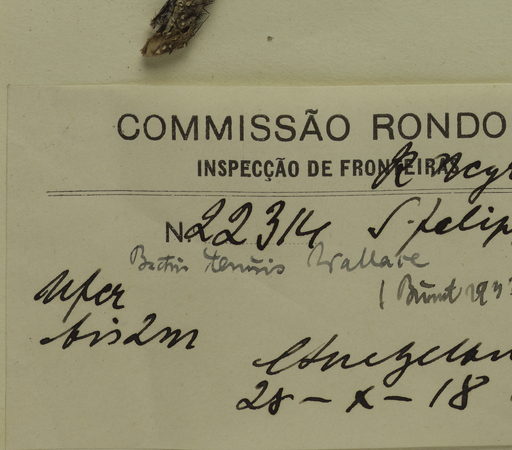 COMMISSÃO RONDO
INSPECÇÃO DE FRONTEIRAS
R. Negr
N. 22314 S. Felip
Bactris tenuis Wallace
(Burret 193
Ufer
bis 2 m
28 - X - 18